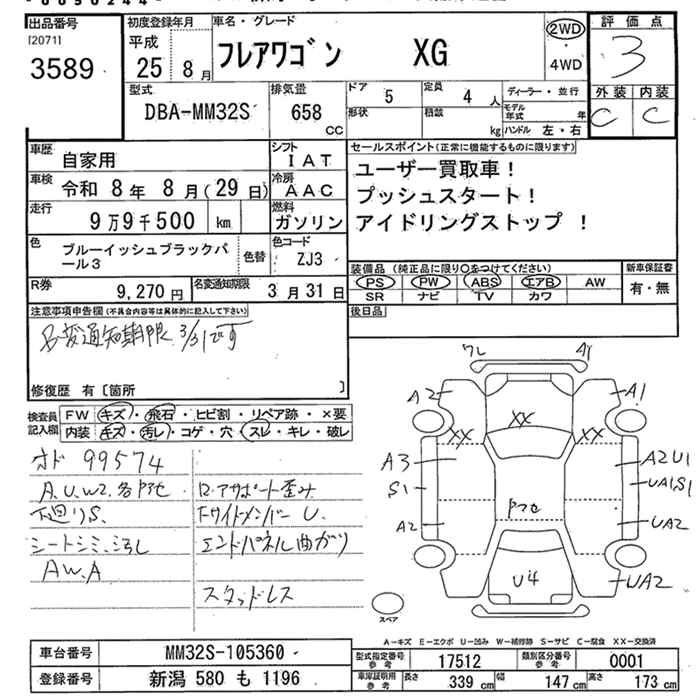 出品番号
[2071]
3589
初度登録年月
平成
25 8月
車名・グレード
フレアワゴン XG
2WD
4WD
評価点
3
外装 内装
C C
型式
DBA-MM32S
排気量
658
CC
ドア
5
定員
4人
形状
積載
kg
ディーラー・並行
モデル年式 年
ハンドル 左・右
車歴
自家用
シフト
IAT
車検
令和 8年 8月(29日)
冷房
AAC
走行
9万9千500 km
燃料
ガソリン
色
ブルーイッシュブラックパール3
色替
色コード
ZJ3
R券
9,270円
名変通知期限
3月31日
セールスポイント(正常に機能するものに限ります)
ユーザー買取車!
プッシュスタート!
アイドリングストップ !
装備品 (純正品に限り○をつけてください)
PS PW ABS エアB AW
SR ナビ TV カワ
新車保証書
有・無
後日品
注意事項申告欄(不具合内容等は具体的に記入して下さい)
名変通知期限 3/31です
修復歴 有〔箇所 〕
検査員記入欄
FW キズ・飛石・ヒビ割・リペア跡・×要
内装 キズ・汚レ・コゲ・穴・スレ・キレ・破レ
オド 99574
A.U.W2.各所他
下廻りS.
シートシミ、汚レ
AW.A
ロアサポート歪み
Fサイドメンバー U.
エンドパネル曲がり
スタッドレス
ワレ A1
A2 A1
XX
XX XX
A3 A2U1
S1 UA1S1
A2 UA2
U4 UA2
スペア
A-キズ E-エクボ U-凹み W-補修跡 S-サビ C-腐食 XX-交換済
車台番号
MM32S-105360
登録番号
新潟 580 も 1196
型式指定番号
参考
17512
類別区分番号
参考
0001
車庫証明用
参考
長さ 339cm 幅 147cm 高さ 173cm